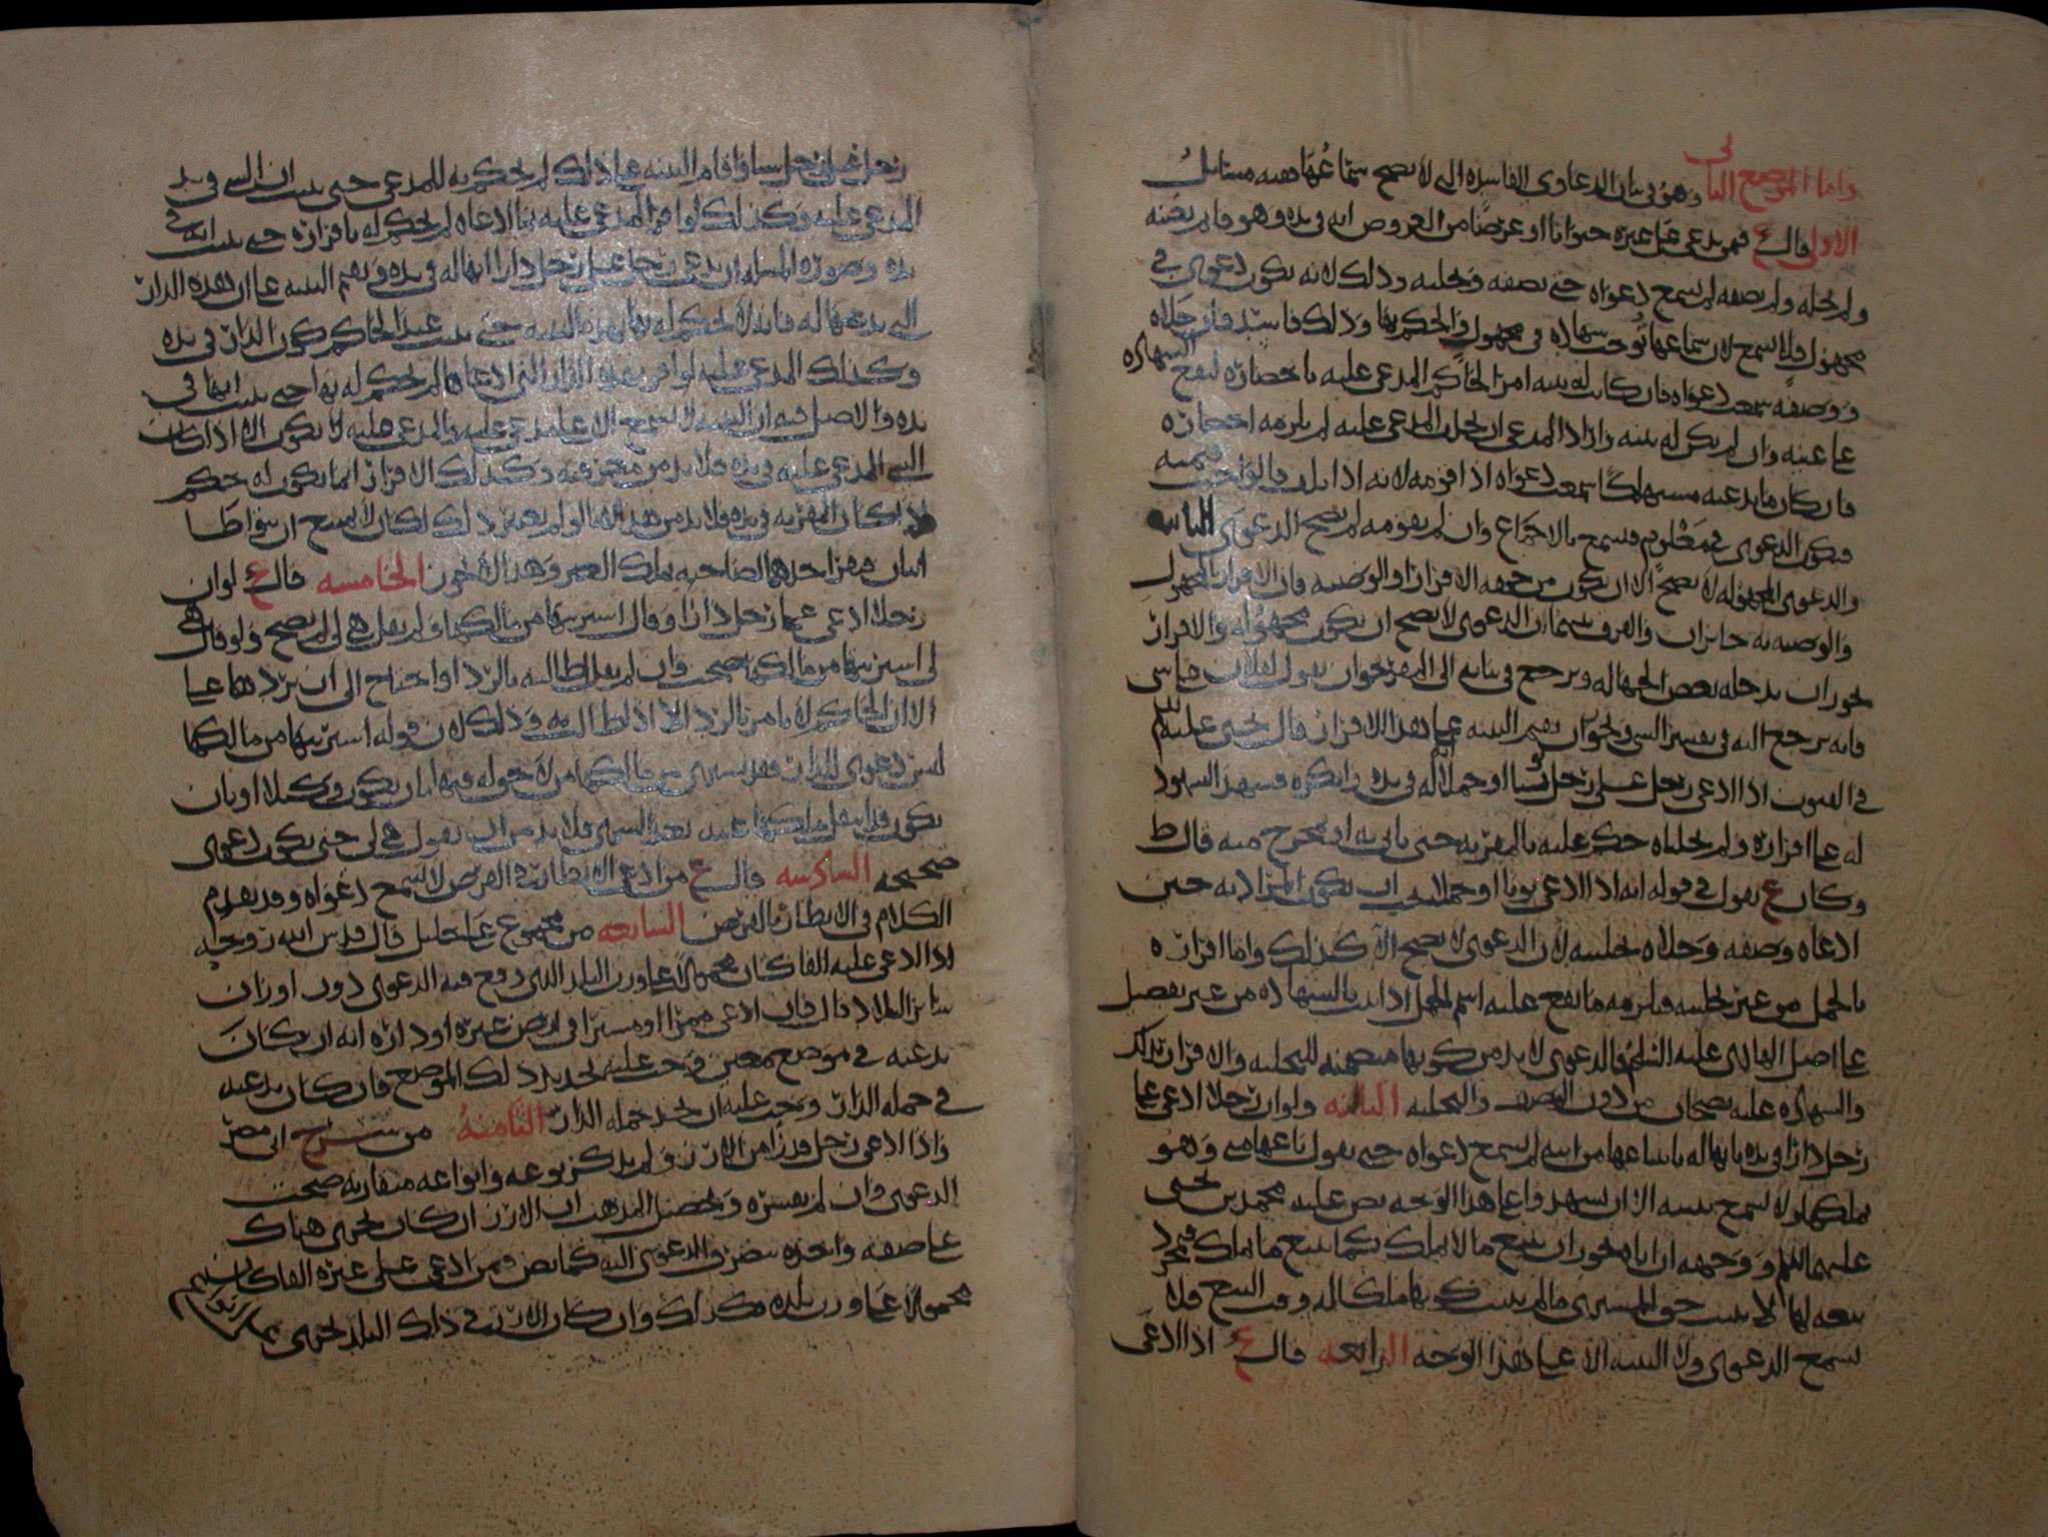 واما الموضع الثاني وهو في بيان الدعاوى الفاسدة التي لا يصح سماعها ففيه مسائل
الاولى قال ع فمن يدعي على غيره حيوانا او عرضا من العروض انه في يده وهو قايم بعينه
ولم يحله ولم يصفه لم يسمع دعواه حتى يصفه ويحليه وذلك لانه يكون دعوى في
مجهول فلا تسمع لان سماعها توجب شهادة في مجهول والحكم بها وذلك فاسد فان حلاه
ووصفه سمعت دعواه فان كانت له بينه امر الحاكم المدعى عليه باحضاره لتقع الشهاده
على عينه وان لم يكن له بينه واراد المدعي ان يحلف المدعى عليه لم يلزمه احضاره
فان كان ما يدعيه مستهلكا سمعت دعواه اذا قومه لانه اذا تلف فالواجب قيمته
فتكون الدعوى في معلوم فتسمع بالاجماع وان لم يقومه لم تصح الدعوى الثانيه
والدعوى المجهوله لا تصح الا ان يكون من جهه الاقرار او الوصيه فان الاقرار بالمجهول
والوصيه به جايزان والفرق بينهما ان الدعوى لا يصح ان يكون مجهوله والاقرار
يجوز ان يدخله بعض الجهاله ويرجع في بيانه الى المقر نحو ان يقول لفلان علي شي
فانه يرجع اليه في تفسير الشي ويجوز ان يقيم البينه على هذا الاقرار قال يحيى عليلم
في الفنون اذا ادعى رجل على رجل ثوبا او جملا انه له في يده وانكره فشهد الشهود
له على اقراره ولم يحلياه حكم عليه بالمقر به حتى ياتي به او يخرج منه قال ط
وكان ع يقول في قوله انه اذا ادعى ثوبا او جملا يجب ان يكون المراد به حين
ادعاه وصفه وحلاه بحليته لان الدعوى لا تصح الا كذلك واما اقراره
بالجمل من غير تحليته فيلزمه ما يقع عليه اسم الجمل اذا ثبت بالشهاده من غير تفصيل
على اصل الهادي عليه السلم فالدعوى لا بد من كونها متضمنه للتحليه والاقرار بذلك
والشهاده عليه يصحان من دون الوصف والتحليه الثالثه ولو ان رجلا ادعى على
رجل دارا في يده بانها له باعها من ابيه لم يسمع دعواه حتى يقول باعها مني وهو
يملكها ولا تسمع بينته الا ان يشهدوا على هذا الوجه نص عليه محمد بن يحيى
عليهما السلم ووجهه ان اباه يجوز ان يبيع ما لا يملك كما يبيع ما يملك فمجرد
بيعه لها لا يثبت حق المشتري ما لم يثبت كونها ملكا له وقت البيع فلا
تسمع الدعوى ولا البينه الا على هذا الوجه الرابعه قال ع اذا ادعى
رجل على رجل شيا واقام البينه على ذلك لم يحكم به للمدعي حتى يثبت ان الشي في يد
المدعى عليه وكذلك لو اقر المدعى عليه بما ادعاه لم يحكم له باقراره حتى يثبت انه في
يده وصورة المسله ان يدعي رجل على رجل دارا انها له في يده ويقيم البينه على ان هذه الدار
التي يدعيها له فانه لا يحكم له بها بهذه البينه حتى يثبت عند الحاكم كون الدار في يده
وكذلك المدعى عليه لو اقر بهذه الدار التي ادعاها لم يحكم له بها حتى يثبت انها في
يده والاصل فيه ان البينه لا تسمع الا على مدعى عليه والمدعى عليه لا يكون الا اذا كان
الشي المدعى عليه في يده فلا بد من معرفته وكذلك الاقرار انما يكون له حكم
اذا كان المقر به في يده فلا بد من هذا ولو لم يعتبر ذلك لكان لا يمتنع ان يتواطا
اثنان فيقر احدهما لصاحبه بملك الغير وهذا لا يجوز الخامسه قال ع لو ان
رجلا ادعى على رجل دارا وقال اشتريتها من مالكها ولم يقل هي لي لم يصح ولو قال هي
لي اشتريتها من مالكها صحت وان لم يقل اطالبه بالرد او احتاج الى ان يردها عليا
الا ان الحاكم لا يامر بالرد الا اذا طالب به وذلك لان قوله اشتريتها من مالكها
ليس دعوى للدار فقد يشتري من مالكها من لا حق له فيها بان يكون وكيلا او بان
يكون قد انتقل ملكها عنه بعد الشرى فلا بد من ان يقول هي لي حتى يكون دعوى
صحيحه السادسه قال ع من ادعى الانظار في القرض لا تسمع دعواه وقد تقدم
الكلام في الانظار بالقرض السابعه من مجموع علي خليل قال قدس الله روحه
اذا ادعى عليه الفا كان محمولا على وزن البلد الذي وقع فيه الدعوى دون اوزان
ساير البلاد قال فان ادعى ممرا او مسيلا في ارض غيره او داره انه ان كان
يدعيه في موضع معين وجب عليه تحديد ذلك الموضع فان كان يدعيه
في جمله الدار وجب عليه ان يحد جمله الدار الثامنه من شرح ابي مضر
واذا ادعى رجل قدرا من الارز ولم يذكر نوعه وانواعه متقاربه صحت
الدعوى وان لم يفسره وتحصيل المذهب ان الارز ان كان يجري هناك
على صفه واحده يصرف الدعوى اليه كما نص فيمن ادعى على غيره الفا كان
محمولا على وزن بلده فكذلك وان كان الارز في ذلك البلد يجري